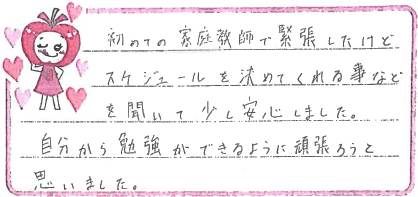 初めての家庭教師で緊張したけど
スケジュールを決めてくれる事など
を聞いて少し安心しました。
自分から勉強ができるように頑張ろうと
思いました。